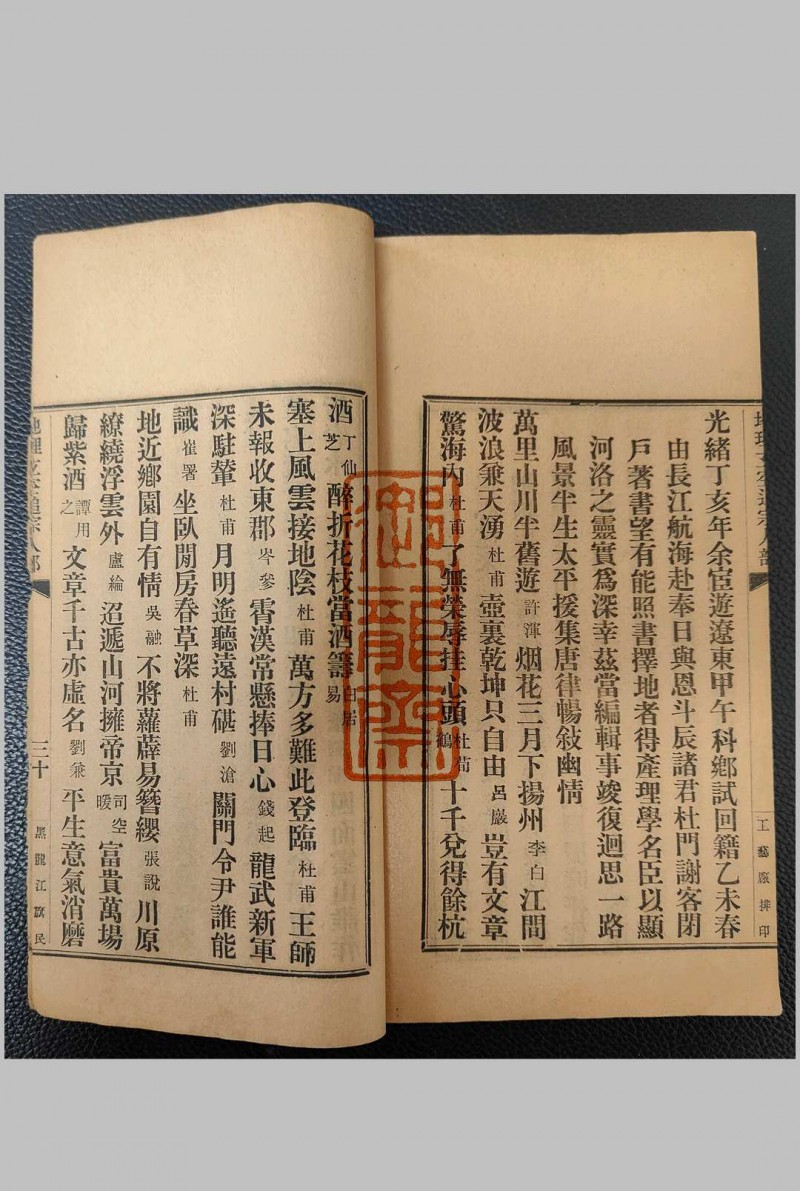 光緒丁亥年余宦遊遼東甲午科鄉試回籍乙未春
由長江航海赴奉日與恩斗辰諸君杜門謝客閉
戶著書望有能照書擇地者得產理學名臣以顯
河洛之靈實爲深幸茲當編輯事竣復迴思一路
風景半生太平援集唐律暢敍幽情
萬里山川半舊遊許渾烟花三月下揚州李白江間
波浪兼天湧杜甫壺裏乾坤只自由呂巖豈有文章
驚海內杜甫了無榮辱挂心頭杜荀鶴十千兌得餘杭
工藝廠排印
酒丁仙芝醉折花枝當酒籌白居易
塞上風雲接地陰杜甫萬方多難此登臨杜甫王師
未報收東郡岑參霄漢常懸捧日心錢起龍武新軍
深駐輦杜甫月明遙聽遠村砧劉滄關門令尹誰能
識崔署坐臥閒房春草深杜甫
地近鄉園自有情吳融不將蘿薜易簪纓張說川原
繚繞浮雲外盧綸迢遞山河擁帝京司空曙富貴萬場
歸紫酒譚用之文章千古亦虛名劉兼平生意氣消磨
三十
黑龍江旗民